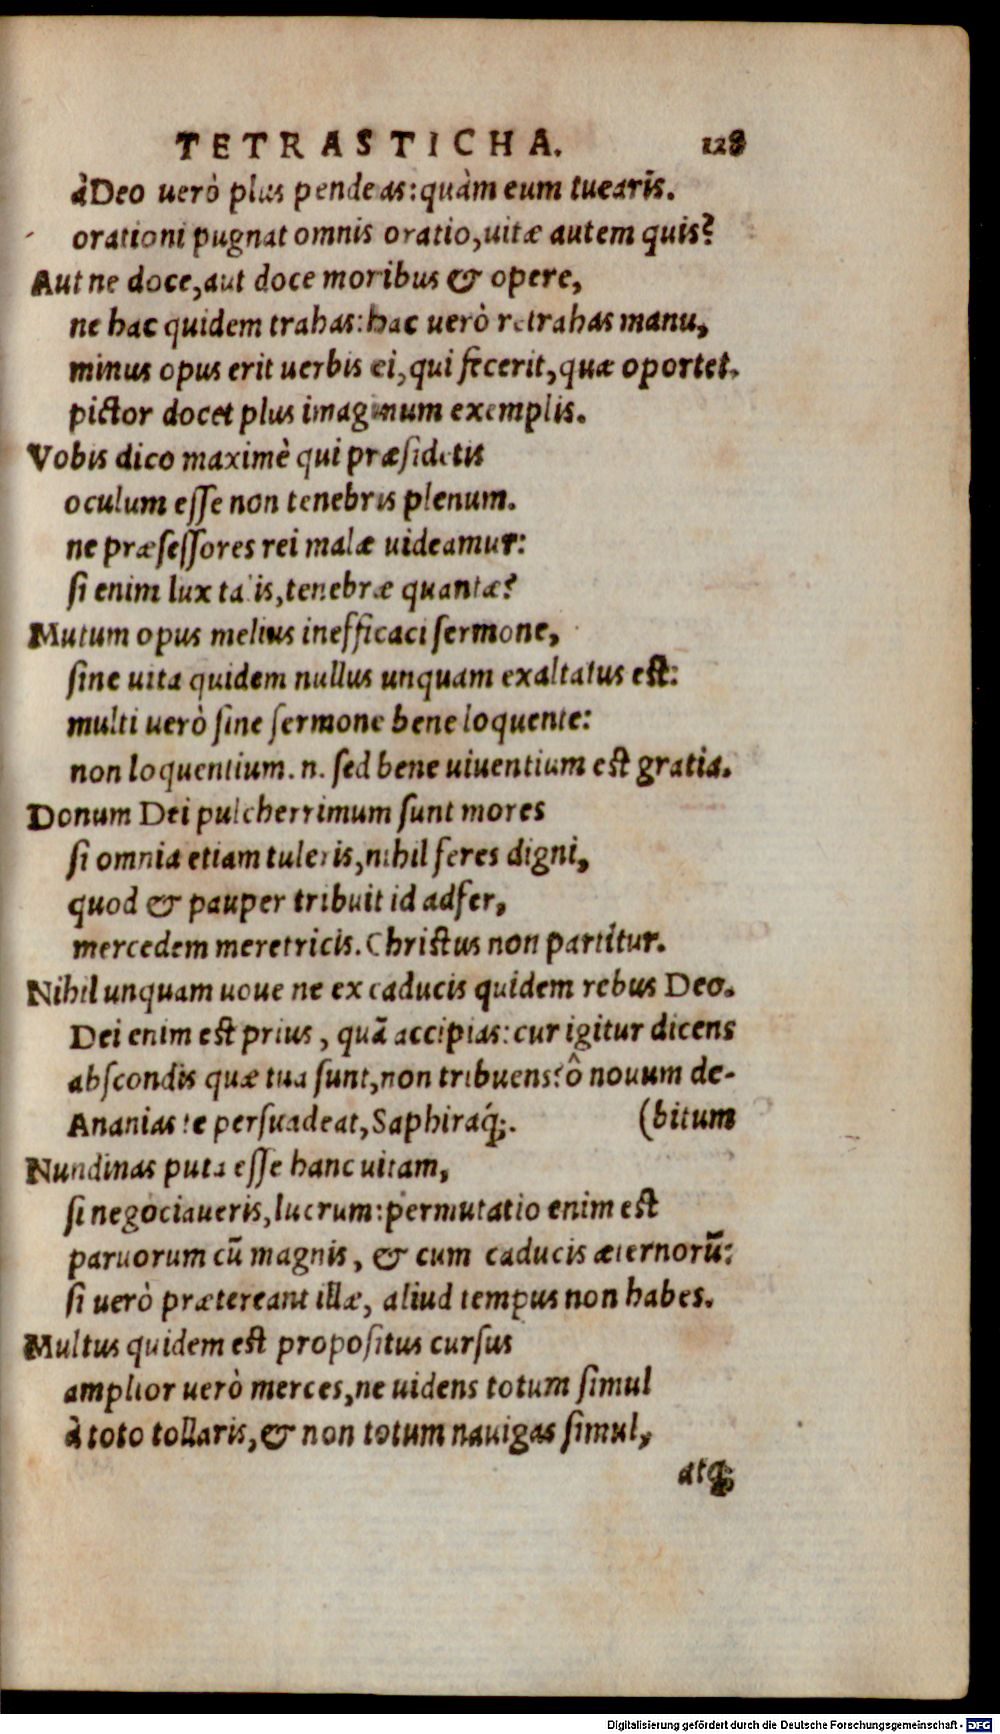 TETRASTICHA. 128
à Deo uerò plus pendeas: quàm eum tuearis.
orationi pugnat omnis oratio, uitæ autem quis?
Aut ne doce, aut doce moribus & opere,
ne hac quidem trahas: hac uerò retrahas manu,
minus opus erit uerbis ei, qui fecerit, quæ oportet.
pictor docet plus imaginum exemplis.
Vobis dico maximè qui præsidetis
oculum esse non tenebris plenum.
ne præsessores rei malæ uideamur:
si enim lux talis, tenebræ quantæ?
Mutum opus melius inefficaci sermone,
sine uita quidem nullus unquam exaltatus est:
multi uerò sine sermone bene loquente:
non loquentium. n. sed bene uiuentium est gratia.
Donum Dei pulcherrimum sunt mores
si omnia etiam tuleris, nihil feres digni,
quod & pauper tribuit id adfer,
mercedem meretricis. Christus non partitur.
Nihil unquam uoue ne ex caducis quidem rebus Deo.
Dei enim est prius, quã accipias: cur igitur dicens
abscondis quæ tua sunt, non tribuens? ô nouum de-
Ananias te persuadeat, Saphiraq́;. (bitum
Nundinas puta esse hanc uitam,
si negociaueris, lucrum: permutatio enim est
paruorum cũ magnis, & cum caducis æternorũ:
si uerò prætereant illæ, aliud tempus non habes.
Multus quidem est propositus cursus
amplior uerò merces, ne uidens totum simul
à toto tollaris, & non totum nauigas simul,
atq;
Digitalisierung gefördert durch die Deutsche Forschungsgemeinschaft - DFG